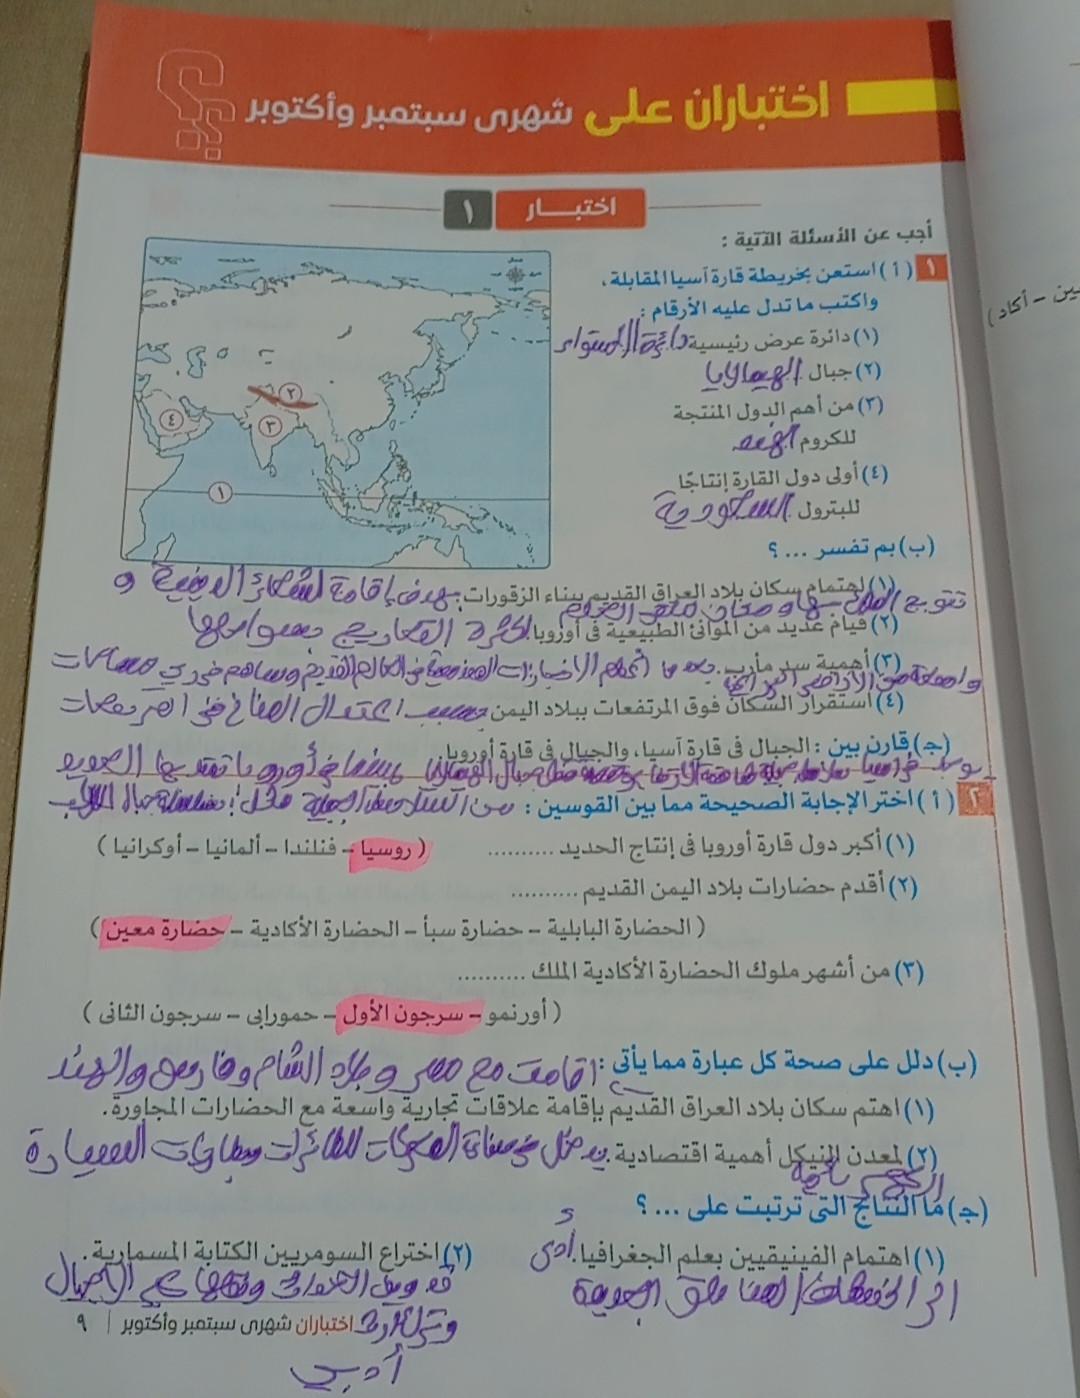 اختباران على شهرى سبتمبر وأكتوبر
اختبار ١
أجب عن الأسئلة الآتية :
١ (أ) استعن بخريطة قارة آسيا المقابلة،
واكتب ما تدل عليه الأرقام :
(١) دائرة عرض رئيسية دائرة الاستواء
(٢) جبال الهيمالايا
(٣) من أهم الدول المنتجة
للكروم الهند
(٤) أولى دول القارة إنتاجًا
للبترول السعودية
٢
٣
٤
١
(ب) بم تفسر ... ؟
(١) اهتمام سكان بلاد العراق القديم ببناء الزقورات. بهدف إقامة الشعائر الدينية و
(٢) قيام عديد من الموانئ الطبيعية فى أوروبا. لكثرة التعاريج بسواحلها
(٣) أهمية سد مأرب. من الإنجازات الهندسية فى العالم القديم وساهم فى رى مساحات
واسعة من الأراضى الزراعية
(٤) استقرار السكان فوق المرتفعات ببلاد اليمن بسبب اعتدال المناخ فى المرتفعات
(جـ) قارن بين : الجبال فى قارة آسيا، والجبال فى قارة أوروبا.
٢ (أ) اختر الإجابة الصحيحة مما بين القوسين : من السلاسل الجبلية مثل : سلسلة جبال الألب
(١) أكبر دول قارة أوروبا فى إنتاج الحديد ..........
( روسيا – فنلندا – ألمانيا – أوكرانيا )
(٢) أقدم حضارات بلاد اليمن القديم ..........
( الحضارة البابلية – حضارة سبأ – الحضارة الأكادية – حضارة معين )
(٣) من أشهر ملوك الحضارة الأكادية الملك ..........
( أورنمو – سرجون الأول – حمورابى – سرجون الثانى )
(ب) دلل على صحة كل عبارة مما يأتى : اقامت مع مصر وبلاد الشام وفارس والهند
(١) اهتم سكان بلاد العراق القديم بإقامة علاقات تجارية واسعة مع الحضارات المجاورة.
(٢) لمعدن النيكل أهمية اقتصادية. يدخل فى صناعة المحركات الطائرات وبطاريات السيارة
(جـ) ما النتائج التى ترتبت على ... ؟
(١) اهتمام الفينيقيين بعلم الجغرافيا. أدى
(٢) اختراع السومريين الكتابة المسمارية.
المناطق الجديدة
تدوين العلوم ونقلها عبر الأجيال
أدبى
اختباران شهرى سبتمبر وأكتوبر | ٩
ين – أكاد )